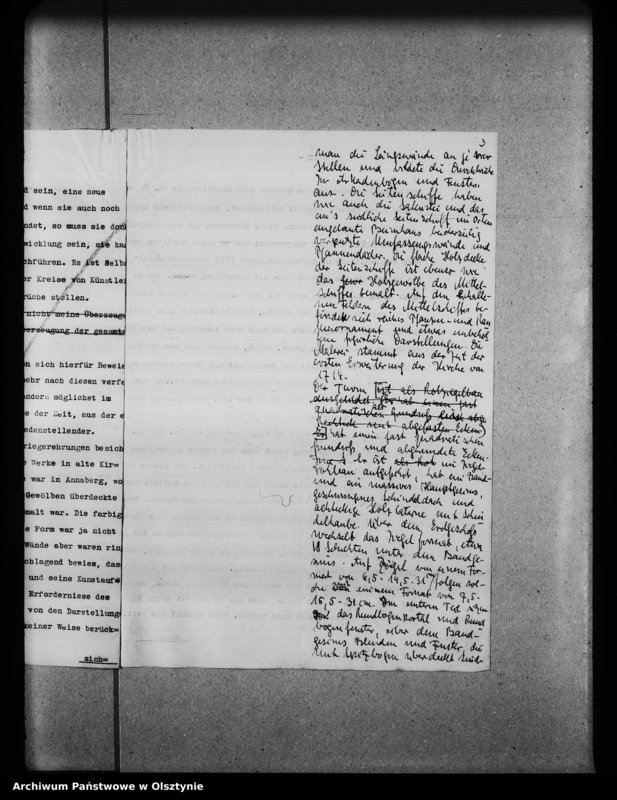 d sein, eine neue
d wenn sie auch noch
ndet, so muss sie doch
wicklung sein, sie ka
chführen. Es ist selbs
er Kreise von Künstler
rüche stellen.
nicht meine Überzeugu
erzeugung der gesamte
n sich hierfür Bewei
ehr nach diesen verfe
ondern möglichst im
e der Zeit, aus der e
edenstellender.
riegerehrungen besich
e Werke in alte Kir=
war in Annaberg, wo
Gewölben überdeckte
malt war. Die farbig
e Form war ja nicht
wände aber waren rin
chlagend bewies, das
und seine Kunstaufs
Erfordernisse des
von den Darstellung
keiner Weise berück=
sich=
3
man die Längswände an je vier
Stellen und bildete die Durchbrüche
zu Arkadenbögen und Fenstern
aus. Die Seitenschiffe haben
wie auch die Sakristei und das
an's südliche Seitenschiff im Osten
angebaute Beinhaus beiderseitig
verputzte Umfassungswände und
Pfannendächer. Die flache Holzdecke
der Seitenschiffe ist ebenso wie
das Holzgewölbe des Mittel-
schiffes bemalt. Auf den erhalte-
nen Feldern des Mittelschiffes be-
findet sich reiches Pflanzen- und Ran
kenornament und etwas unbehol
fene figürliche Darstellungen. Die
Malerei stammt aus der Zeit der
ersten Erweiterung der Kirche von
1714.
Der Turm ist als Rohziegelbau
ausgebildet. Er hat einen fast
quadratischen Grundriß
mit abgefasten Ecken
Er hat einen fast quadratischen
Grundriß und abgerundete Ecken.
Er ist als Roh im Ziegel-
rohbau aufgeführt, hat ein Band-
und ein massives Hauptgesims,
geschwungenes Schindeldach und
achteckige Holzlaterne mit Schin
delhaube. Über dem Erdgeschoß
wechselt das Ziegelformat, etwa
18 Schichten unter dem Bandge-
sims. Auf Ziegel von einem For-
mat von 6,5 - 14,5 - 31 cm folgen sol-
che einem Format von 7,5 -
15,5 - 31 cm. Im unteren Teil sitzen
das Rundbogenportal und Rund
bogenfenster, über dem Band-
gesims Blenden und Fenster, die
mit Spitzbogen überdeckt sind.
Archiwum Państwowe w Olsztynie